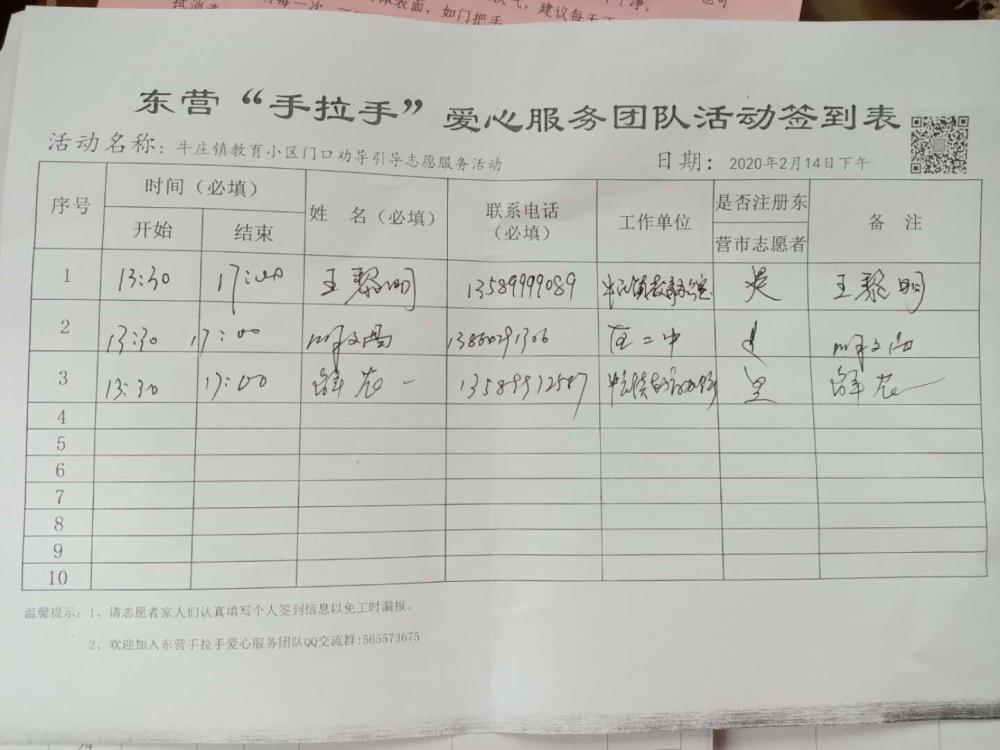 拭消毒
体表面，如门把手
建议每天
东营“手拉手”爱心服务团队活动签到表
活动名称：牛庄镇教育小区门口劝导引导志愿服务活动 日期：2020年2月14日下午
序号 时间（必填） 姓 名（必填） 联系电话（必填） 工作单位 是否注册东营市志愿者 备 注
开始 结束
1 13:30 17:00 王黎明 13589999089 是 王黎明
2 13:30 17:00 区二中
3 13:30 17:00 是
4
5
6
7
8
9
10
温馨提示：1、请志愿者家人们认真填写个人签到信息以免工时漏报。
2、欢迎加入东营手拉手爱心服务团队QQ交流群:565573675